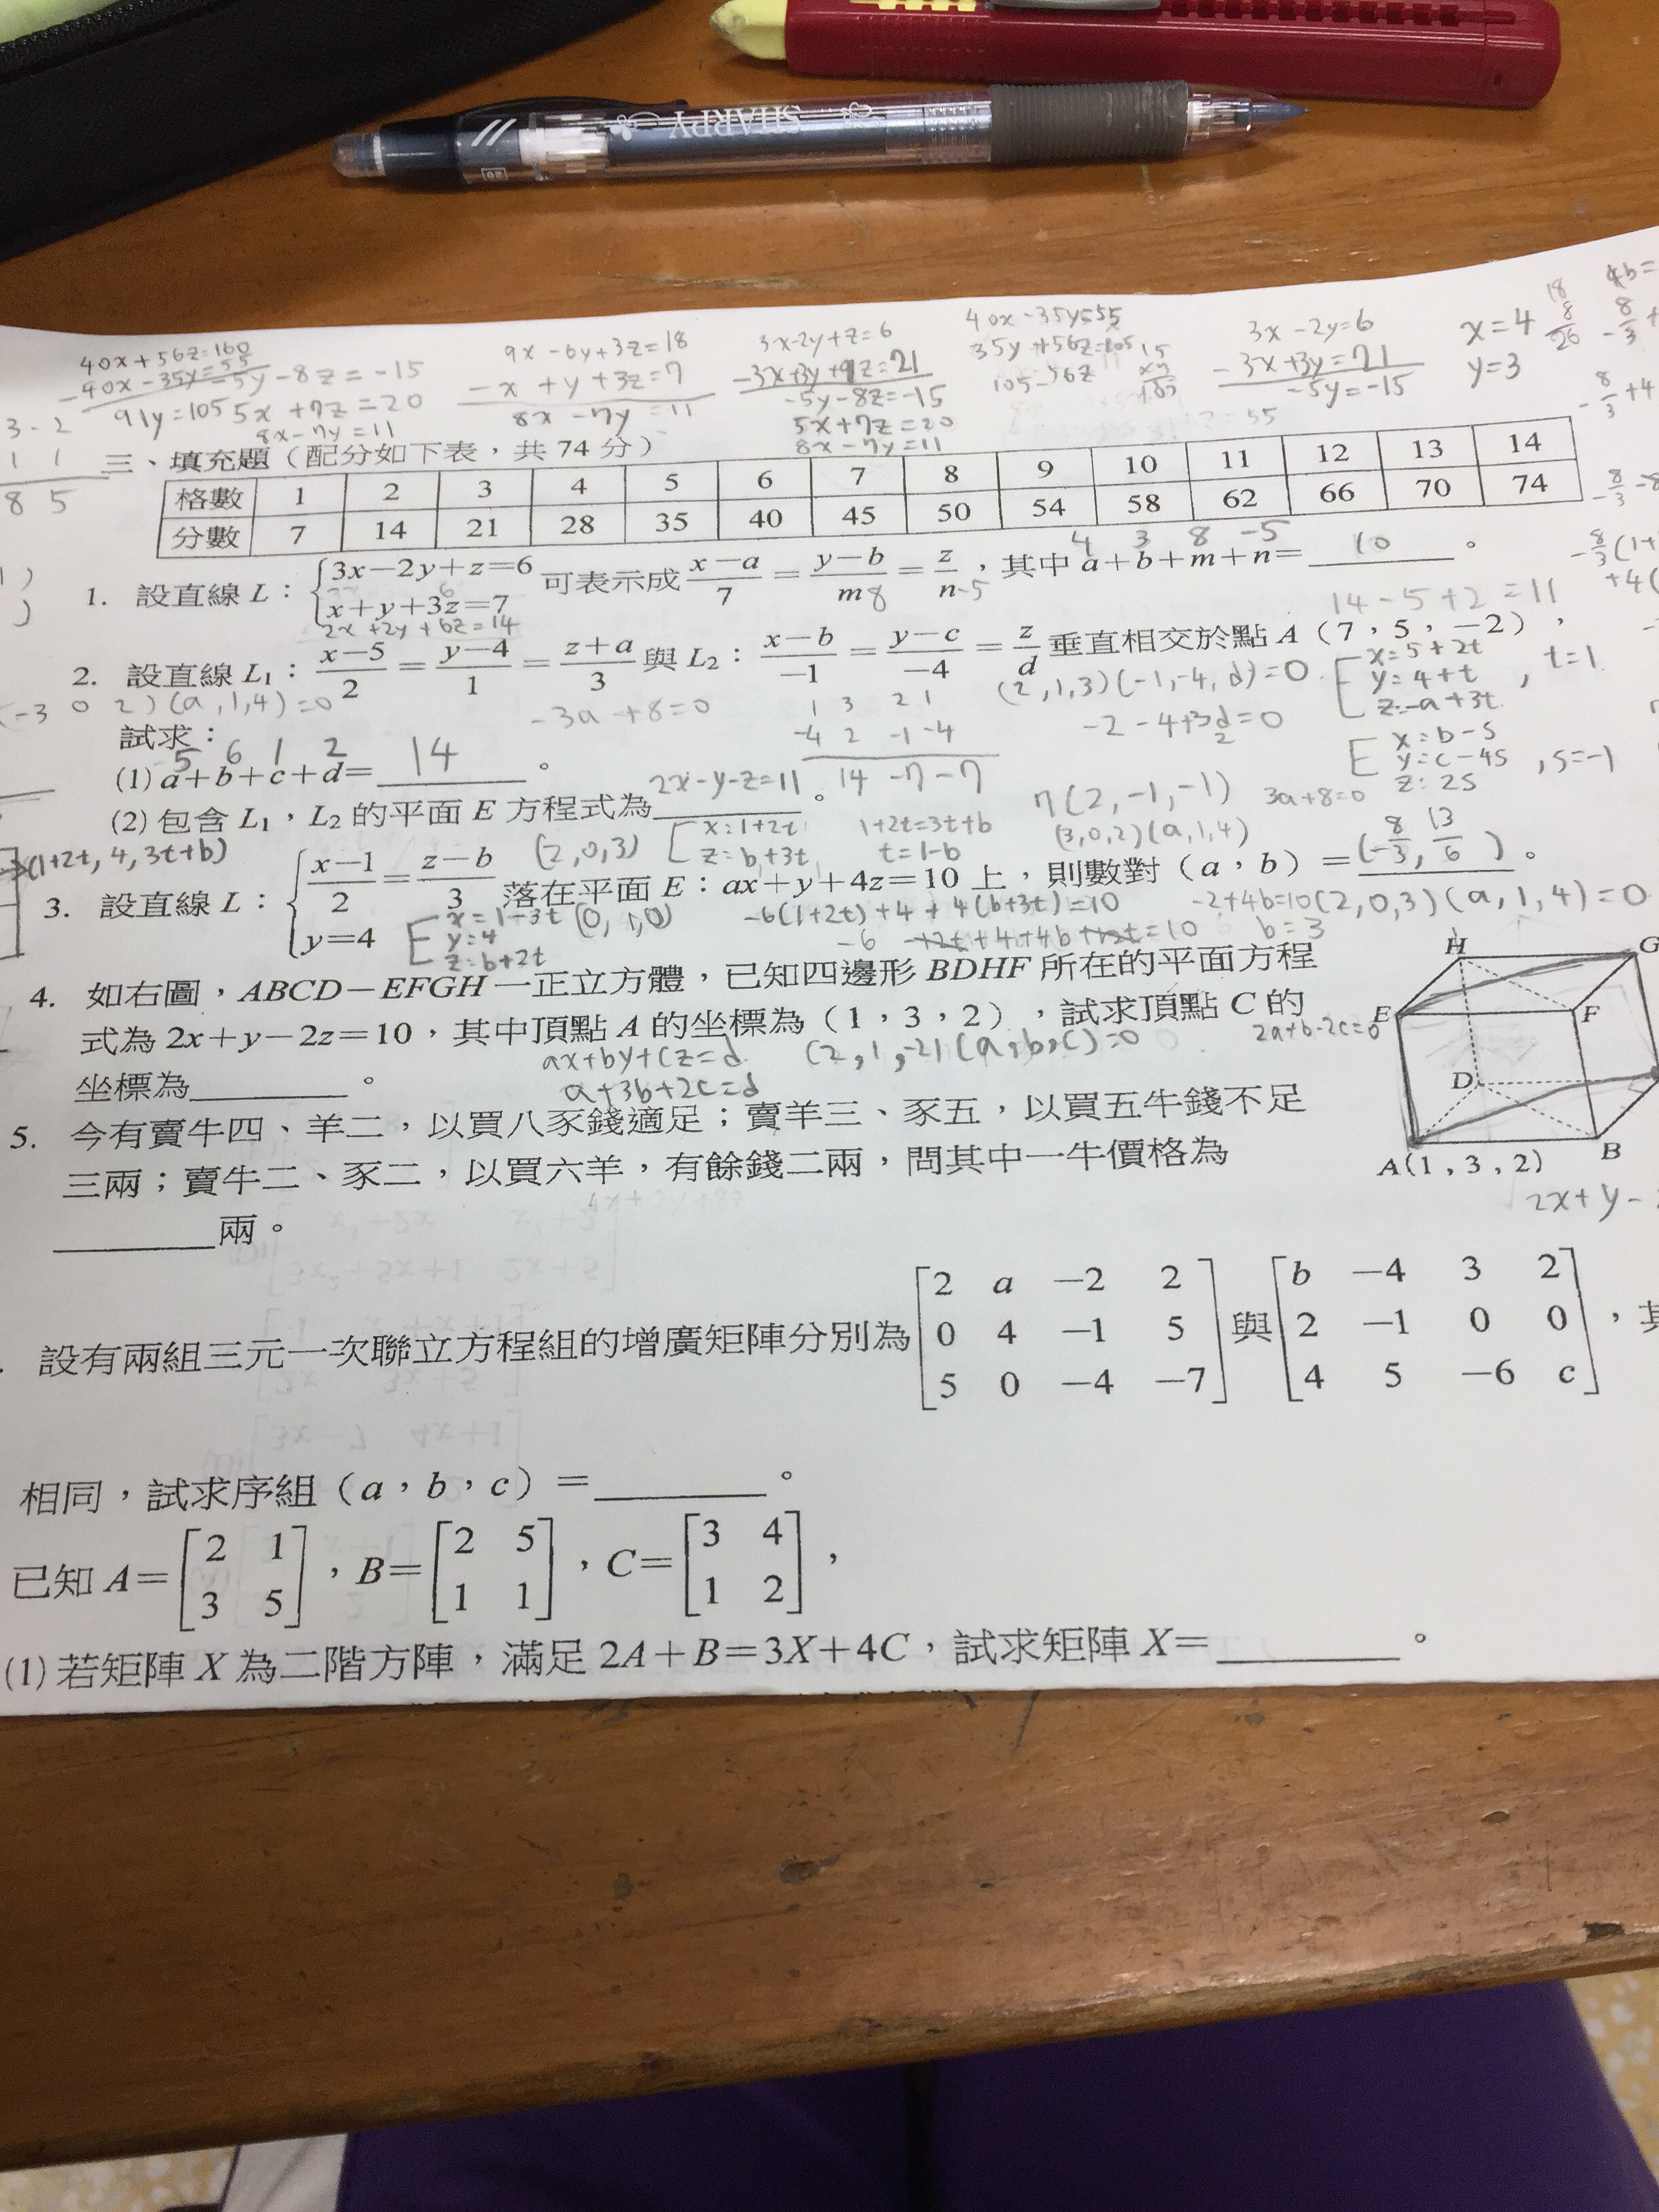 SHARPY
40x+56z=160
-40x-35y=55
91y=105
-5y-8z=-15
5x+7z=20
8x-7y=11
9x-6y+3z=18
-x+y+3z=7
8x-7y=11
3x-2y+z=6
-3x+3y+9z=21
-5y-8z=-15
5x+7z=20
8x-7y=11
40x-35y=55
35y+56z=105
105-56z
3x-2y=6
-3x+3y=21
-5y=-15
x=4
y=3
三、填充題（配分如下表，共 74 分）
格數 1 2 3 4 5 6 7 8 9 10 11 12 13 14
分數 7 14 21 28 35 40 45 50 54 58 62 66 70 74
4 3 8 -5
1. 設直線 L：{3x-2y+z=6 x+y+3z=7 可表示成 x-a/7 = y-b/m = z/n，其中 a+b+m+n= 10 。
8 -5
2x+2y+6z=14
14-5+2=11
2. 設直線 L₁：x-5/2 = y-4/1 = z+a/3 與 L₂：x-b/-1 = y-c/-4 = z/d 垂直相交於點 A（7，5，-2），
(-3 0 2)(a,1,4)=0
-3a+8=0
(2,1,3)(-1,-4,d)=0
-2-4+3d=0
2
x=5+2t
y=4+t
z=-a+3t
, t=1
試求：
5 6 1 2
(1) a+b+c+d= 14 。
1 3 2 1
-4 2 -1 -4
14 -7 -7
x=b-s
y=c-4s
z=2s
, s=-1
(2) 包含 L₁，L₂ 的平面 E 方程式為 2x-y-z=11 。
n(2,-1,-1)
3a+8=0
(1+2t,4,3t+b)
(2,0,3)
x=1+2t
z=b+3t
1+2t=3t+b
t=1-b
(3,0,2)(a,1,4)
3. 設直線 L：{x-1/2 = z-b/3 y=4 落在平面 E：ax+y+4z=10 上，則數對（a，b）=(-8/3, 13/6) 。
x=1-3t
y=4
z=b+2t
(0,1,0)
-6(1+2t)+4+4(b+3t)=10
-6 -12t+4+4b+12t=10
-2+4b=10
b=3
(2,0,3)(a,1,4)=0
4. 如右圖，ABCD-EFGH 一正立方體，已知四邊形 BDHF 所在的平面方程
式為 2x+y-2z=10，其中頂點 A 的坐標為（1，3，2），試求頂點 C 的
坐標為 。
ax+by+cz=d
a+3b+2c=d
(2,1,-2)(a,b,c)=0
2a+b-2c=0
H
G
E
F
D
A(1，3，2)
B
2x+y-
5. 今有賣牛四、羊二，以買八豕錢適足；賣羊三、豕五，以買五牛錢不足
三兩；賣牛二、豕二，以買六羊，有餘錢二兩，問其中一牛價格為
兩。
設有兩組三元一次聯立方程組的增廣矩陣分別為 [2 a -2 2 與 [b -4 3 2
0 4 -1 5 2 -1 0 0
5 0 -4 -7] 4 5 -6 c]，其
相同，試求序組（a，b，c）= 。
已知 A=[2 1 3 5]，B=[2 5 1 1]，C=[3 4 1 2]，
(1) 若矩陣 X 為二階方陣，滿足 2A+B=3X+4C，試求矩陣 X= 。